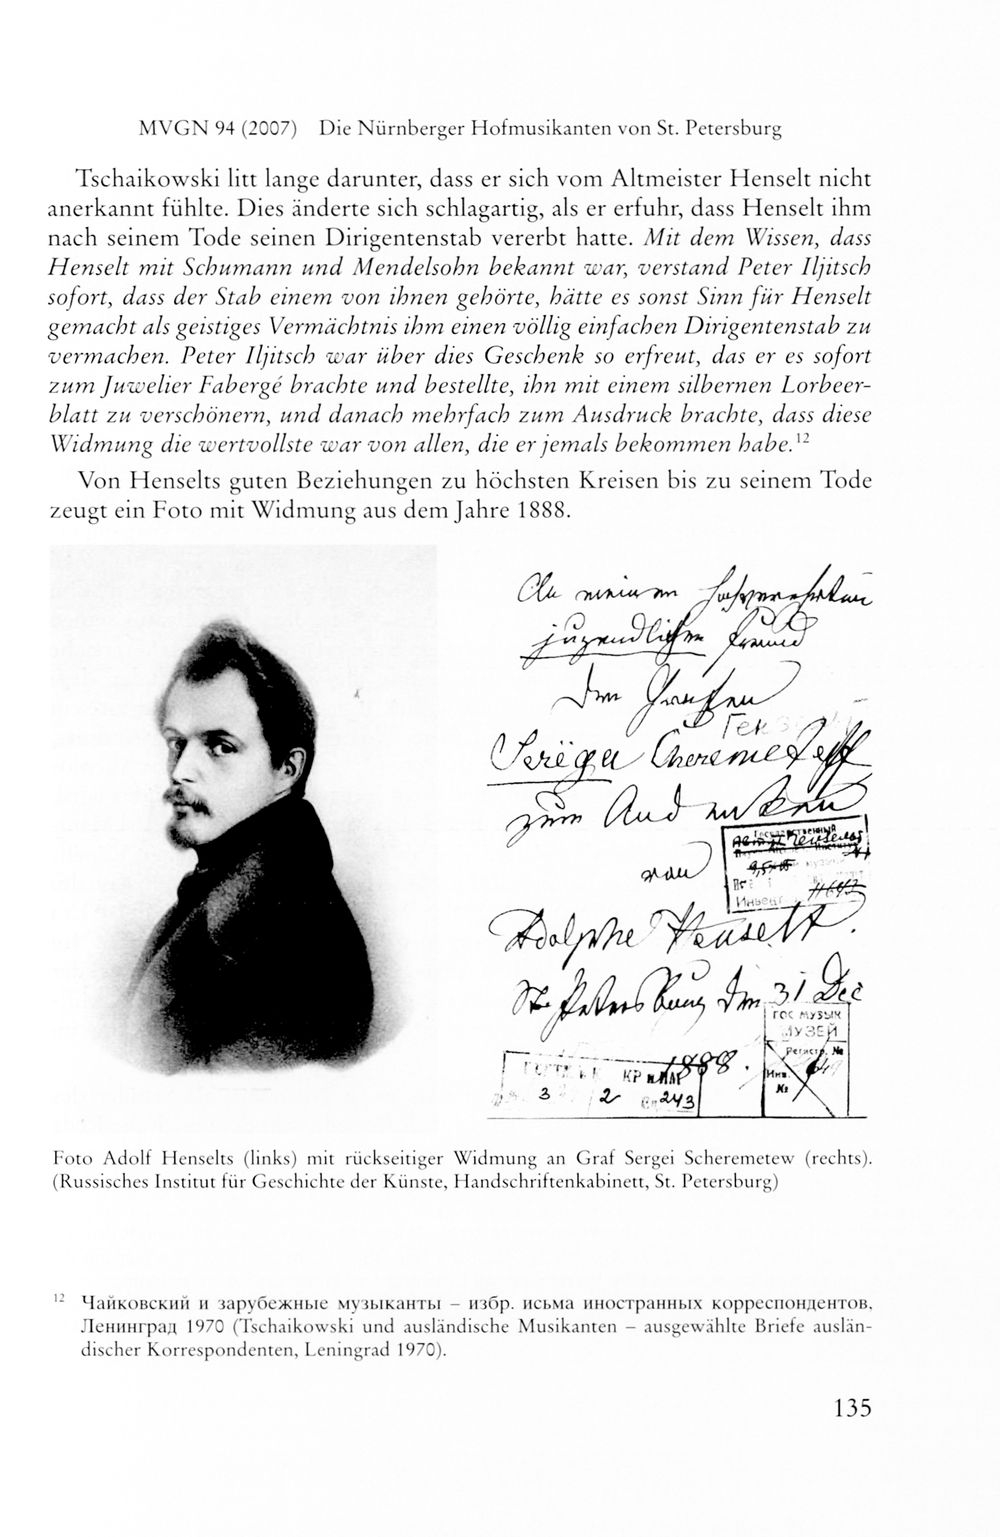 MVGN 94 (2007) Die Nürnberger Hofmusikanten von St. Petersburg
Tschaikowski litt lange darunter, dass er sich vom Altmeister Henselt nicht
anerkannt fühlte. Dies änderte sich schlagartig, als er erfuhr, dass Henselt ihm
nach seinem Tode seinen Dirigentenstab vererbt hatte. Mit dem Wissen, dass
Henselt mit Schumann und Mendelsohn bekannt war, verstand Peter Iljitsch
sofort, dass der Stab einem von ihnen gehörte, hätte es sonst Sinn für Henselt
gemacht als geistiges Vermächtnis ihm einen völlig einfachen Dirigentenstab zu
vermachen. Peter Iljitsch war über dies Geschenk so erfreut, das er es sofort
zum Juwelier Fabergé brachte und bestellte, ihn mit einem silbernen Lorbeer-
blatt zu verschönern, und danach mehrfach zum Ausdruck brachte, dass diese
Widmung die wertvollste war von allen, die er jemals bekommen habe.12
Von Henselts guten Beziehungen zu höchsten Kreisen bis zu seinem Tode
zeugt ein Foto mit Widmung aus dem Jahre 1888.
An meinen hochverehrten
jugendlichen Freund
Den Grafen
Serëga Cheremeteff
zum Andenken
von
Adolphe Henselt.
St. Petersburg den 31 Dec
1888.
ГОС МУЗЫК
МУЗЕЙ
Регистр. №
Инв.
№
КР и ПАГ
3 2 243
Foto Adolf Henselts (links) mit rückseitiger Widmung an Graf Sergei Scheremetew (rechts).
(Russisches Institut für Geschichte der Künste, Handschriftenkabinett, St. Petersburg)
12 Чайковский и зарубежные музыканты – избр. исьма иностранных корреспондентов,
Ленинград 1970 (Tschaikowski und ausländische Musikanten – ausgewählte Briefe auslän-
discher Korrespondenten, Leningrad 1970).
135